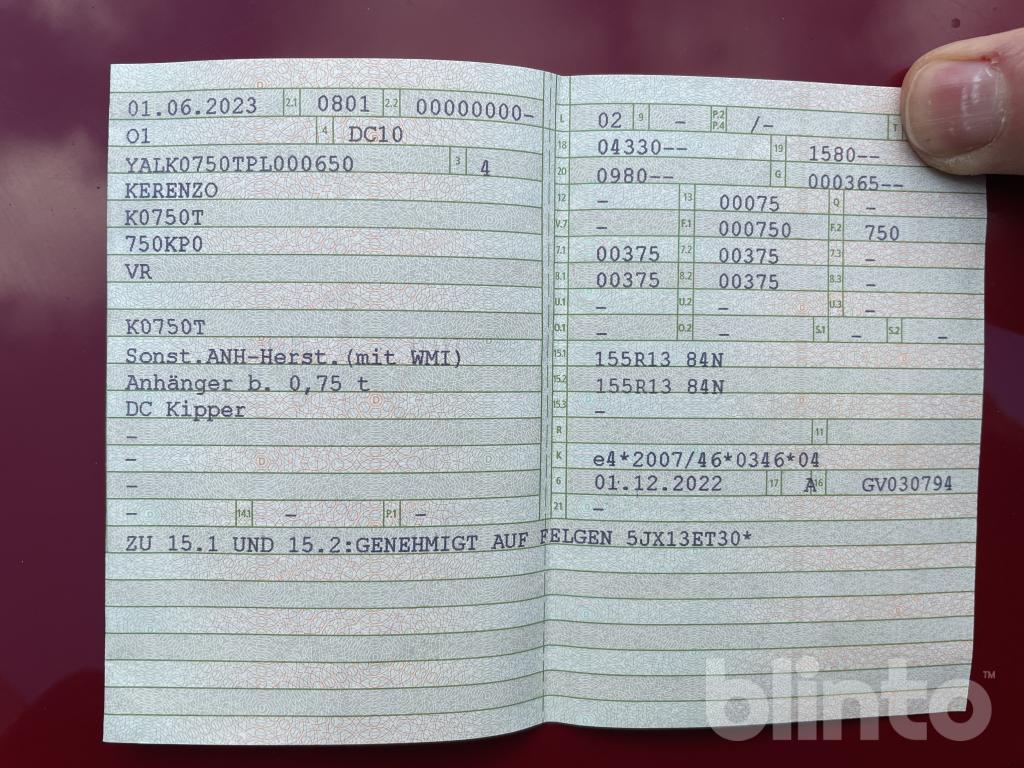 01.06.2023 2.1 0801 2.2 00000000-
O1 4 DC10
YALK0750TPL000650 3 4
KERENZO
K0750T
750KP0
VR
K0750T
Sonst.ANH-Herst.(mit WMI)
Anhänger b. 0,75 t
DC Kipper
-
-
-
- 14.1 - P.1 -
L 02 9 - P.2 P.4 /- T
18 04330-- 19 1580--
20 0980-- G 000365--
12 - 13 00075 Q -
V.7 - F.1 000750 F.2 750
7.1 00375 7.2 00375 7.3 -
8.1 00375 8.2 00375 8.3 -
U.1 - U.2 - U.3 -
O.1 - O.2 - S.1 - S.2 -
15.1 155R13 84N
15.2 155R13 84N
15.3 -
R 11
K e4*2007/46*0346*04
6 01.12.2022 17 A 16 GV030794
21 -
ZU 15.1 UND 15.2:GENEHMIGT AUF FELGEN 5JX13ET30*
blinto™